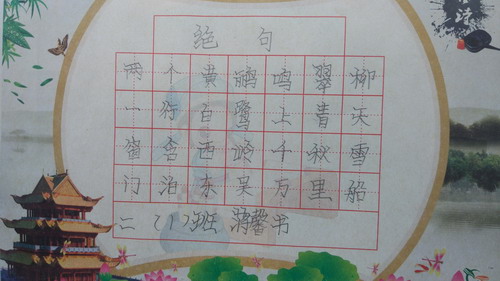 绝句
两个黄鹂鸣翠柳
一行白鹭上青天
窗含西岭千秋雪
门泊东吴万里船
二（1）班 蒋馨书